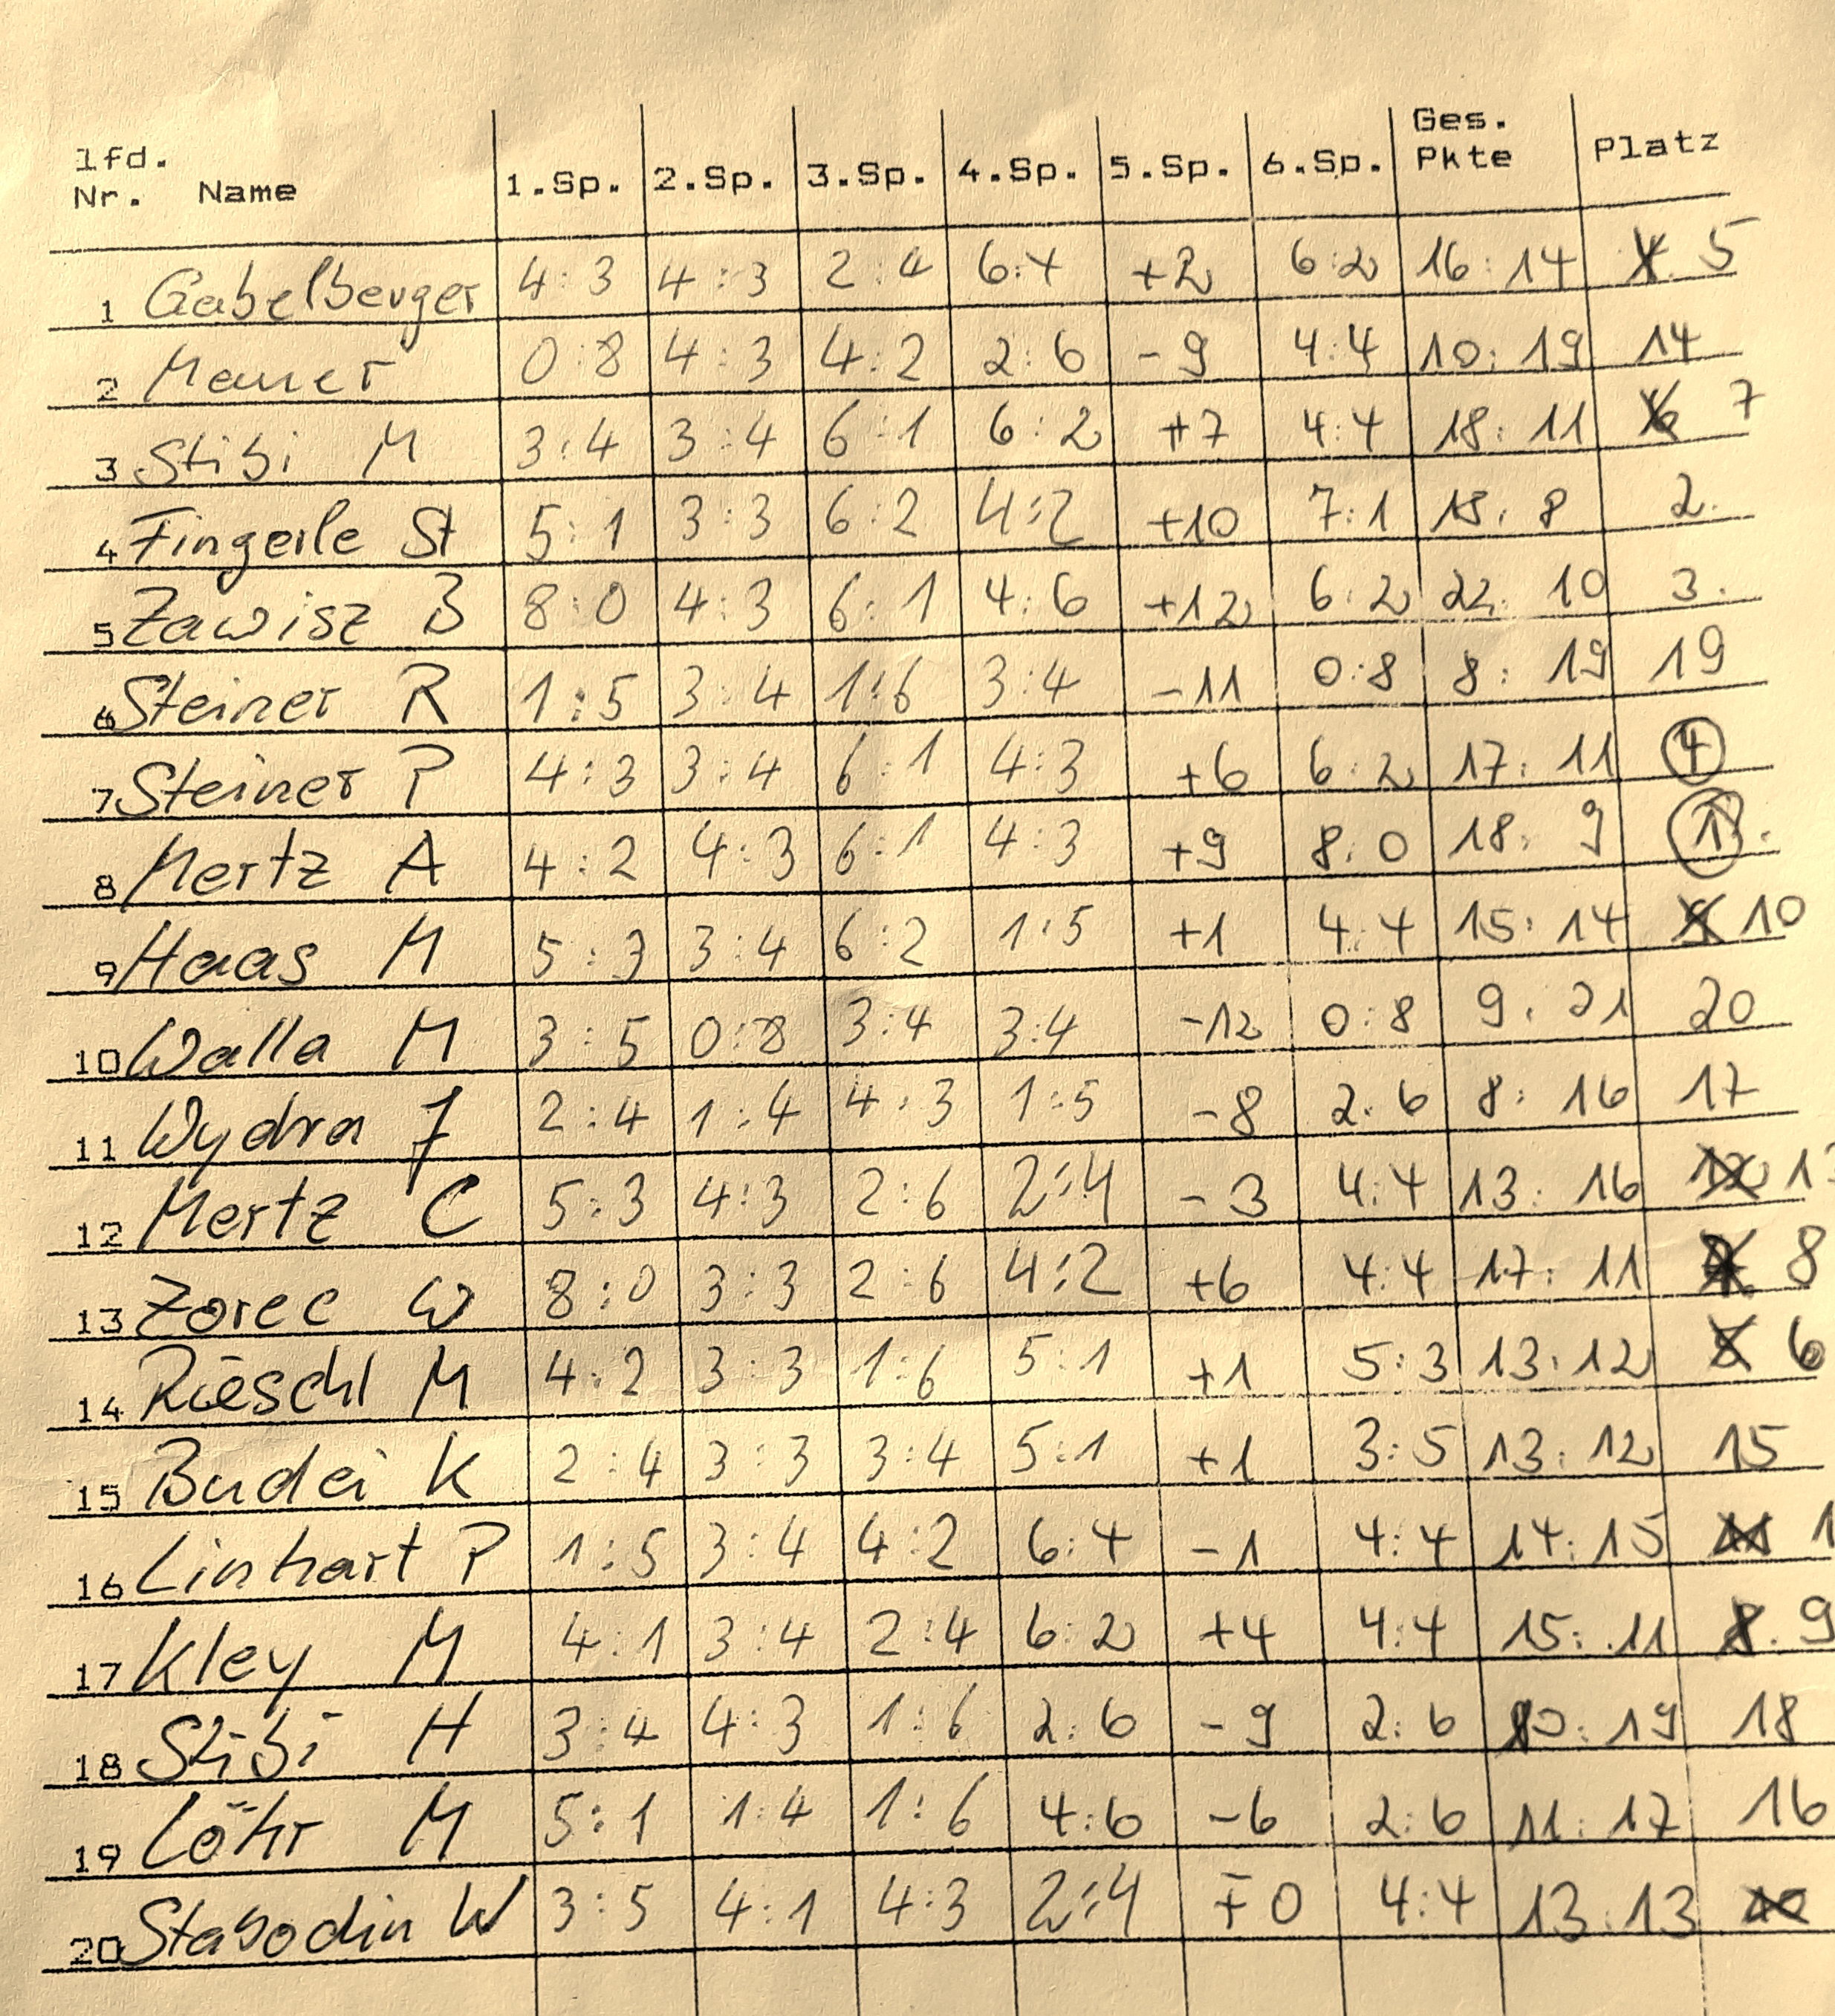 lfd. Nr. Name 1.Sp. 2.Sp. 3.Sp. 4.Sp. 5.Sp. 6.Sp. Ges. Pkte Platz
1 Gabelberger 4:3 4:3 2:4 6:4 +2 6:2 16:14 5
2 Mauer 0:8 4:3 4:2 2:6 -9 4:4 10:19 14
3 Stibi M 3:4 3:4 6:1 6:2 +7 4:4 18:11 7
4 Fingerle St 5:1 3:3 6:2 4:2 +10 7:1 18:8 2.
5 Zawisz B 8:0 4:3 6:1 4:6 +12 6:2 22:10 3.
6 Steiner R 1:5 3:4 1:6 3:4 -11 0:8 8:19 19
7 Steiner P 4:3 3:4 6:1 4:3 +6 6:2 17:11 4
8 Mertz A 4:2 4:3 6:1 4:3 +9 8:0 18:9 1.
9 Haas M 5:3 3:4 6:2 1:5 +1 4:4 15:14 10
10 Walla M 3:5 0:8 3:4 3:4 -12 0:8 9:21 20
11 Wydra J 2:4 1:4 4:3 1:5 -8 2:6 8:16 17
12 Mertz C 5:3 4:3 2:6 2:4 -3 4:4 13:16
13 Zorec W 8:0 3:3 2:6 4:2 +6 4:4 17:11 8
14 M 4:2 3:3 1:6 5:1 +1 5:3 13:12 6
15 Budei K 2:4 3:3 3:4 5:1 +1 3:5 13:12 15
16 Linhart P 1:5 3:4 4:2 6:4 -1 4:4 14:15
17 Kley M 4:1 3:4 2:4 6:2 +4 4:4 15:11 9
18 Stibi H 3:4 4:3 1:6 2:6 -9 2:6 10:19 18
19 Löhr M 5:1 1:4 1:6 4:6 -6 2:6 11:17 16
20 Stabodin W 3:5 4:1 4:3 2:4 ∓0 4:4 13:13